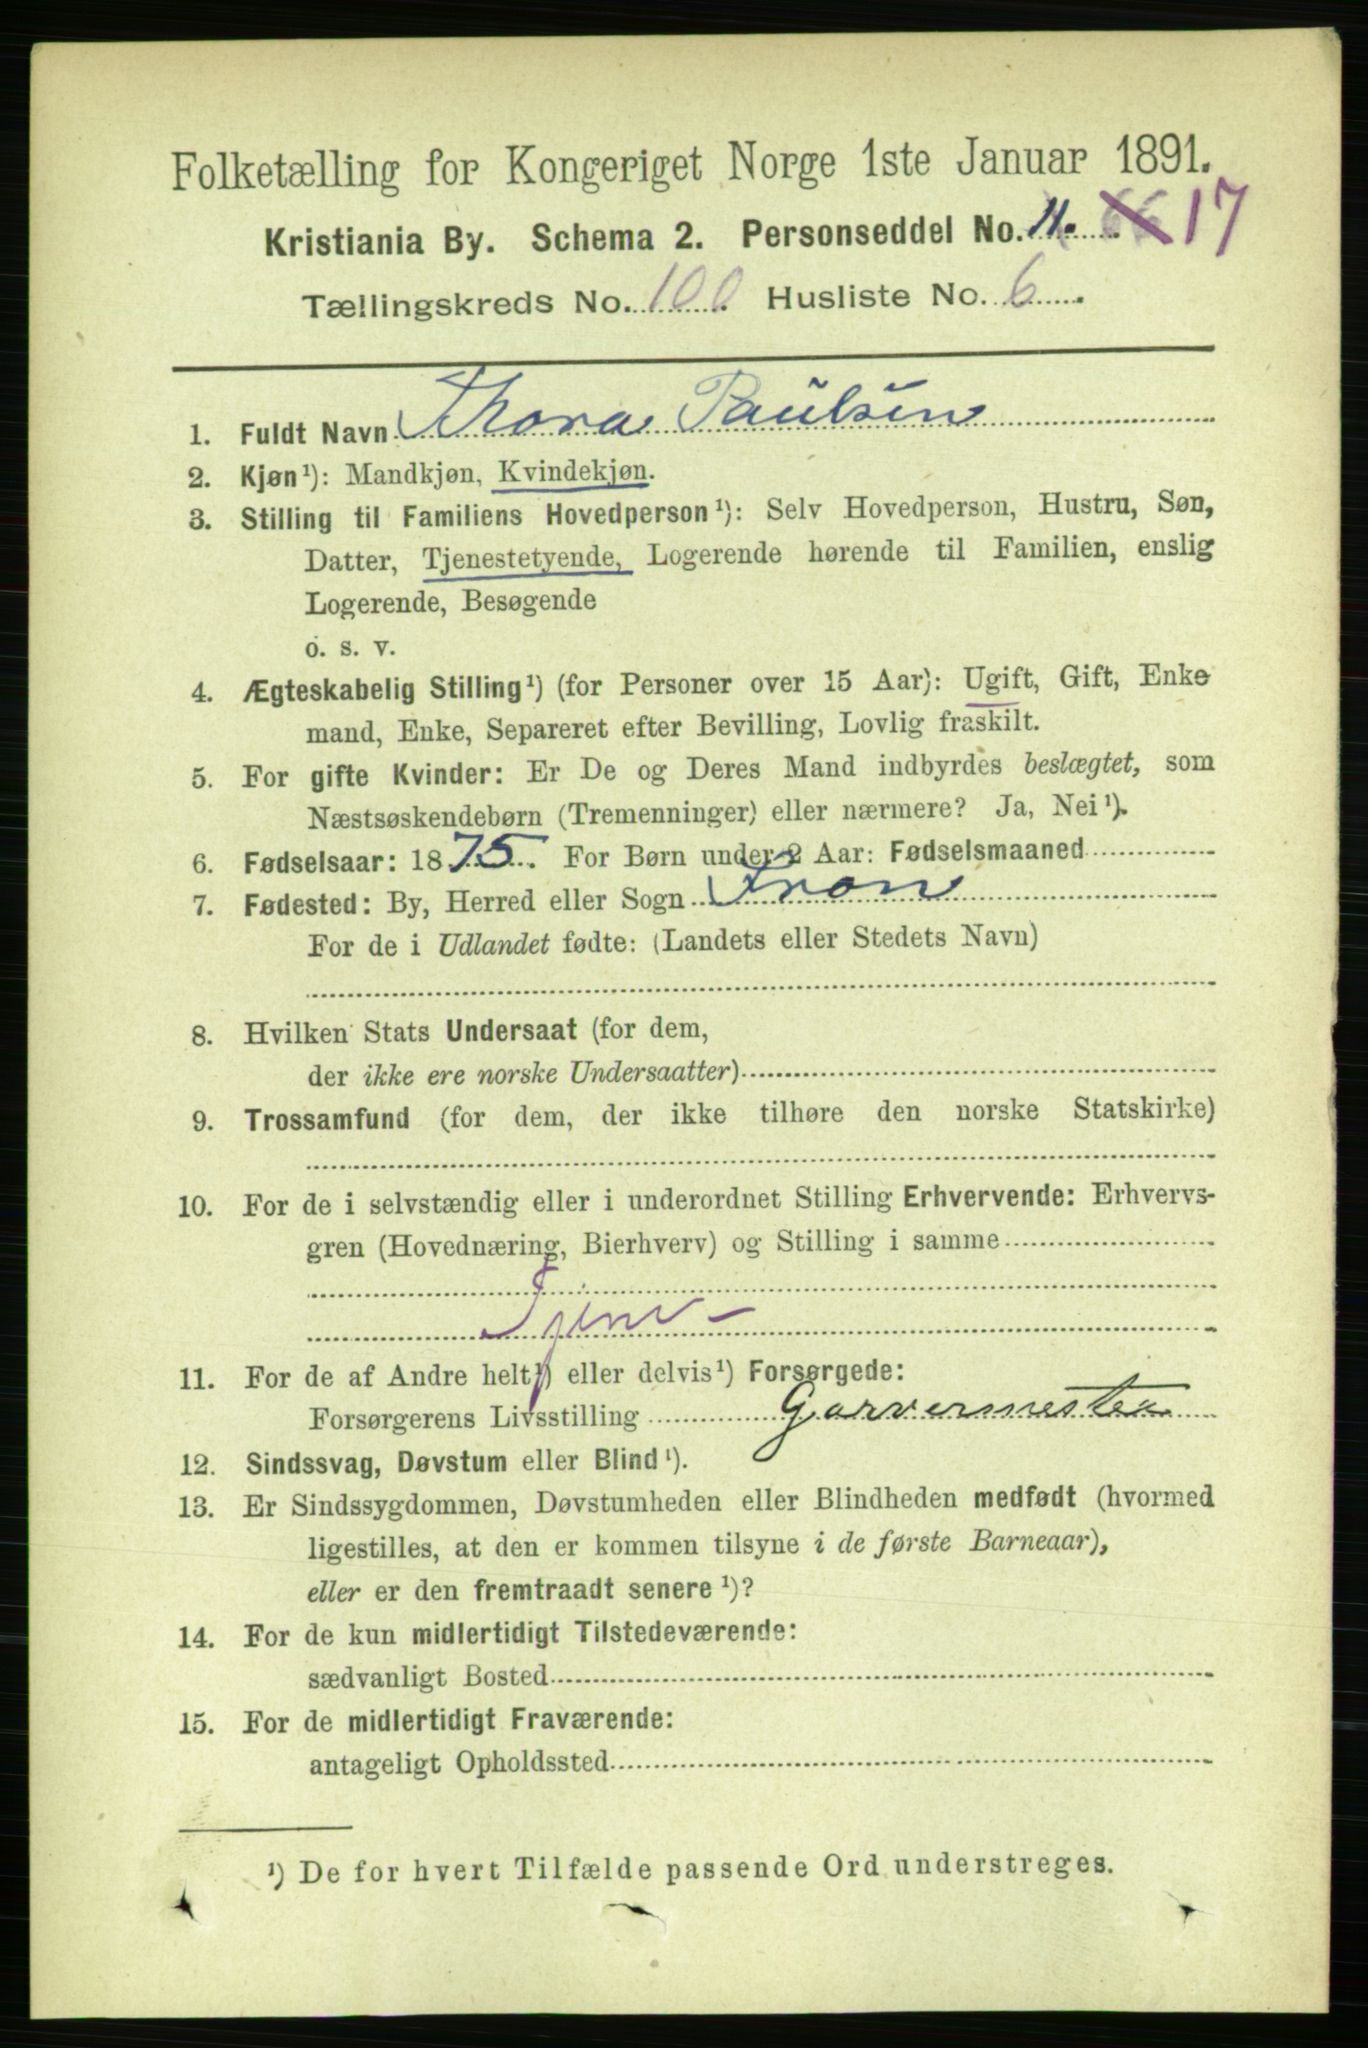 Folketælling for Kongeriget Norge 1ste Januar 1891.
Kristiania By. Schema 2. Personseddel No. 11. 17
Tællingskreds No. 100 Husliste No. 6
1. Fuldt Navn Thora Paulsen
2. Kjøn¹): Mandkjøn, Kvindekjøn.
3. Stilling til Familiens Hovedperson¹): Selv Hovedperson, Hustru, Søn,
Datter, Tjenestetyende, Logerende hørende til Familien, enslig
Logerende, Besøgende
o. s. v.
4. Ægteskabelig Stilling¹) (for Personer over 15 Aar): Ugift, Gift, Enke
mand, Enke, Separeret efter Bevilling, Lovlig fraskilt.
5. For gifte Kvinder: Er De og Deres Mand indbyrdes beslægtet, som
Næstsøskendebørn (Tremenninger) eller nærmere? Ja, Nei¹).
6. Fødselsaar: 1875. For Børn under 2 Aar: Fødselsmaaned
7. Fødested: By, Herred eller Sogn Fron
For de i Udlandet fødte: (Landets eller Stedets Navn)
8. Hvilken Stats Undersaat (for dem,
der ikke ere norske Undersaatter)
9. Trossamfund (for dem, der ikke tilhøre den norske Statskirke)
10. For de i selvstændig eller i underordnet Stilling Erhvervende: Erhvervs-
gren (Hovednæring, Bierhverv) og Stilling i samme
Tjene-
11. For de af Andre helt¹) eller delvis¹) Forsørgede:
Forsørgerens Livsstilling Garvermester
12. Sindssvag, Døvstum eller Blind¹).
13. Er Sindssygdommen, Døvstumheden eller Blindheden medfødt (hvormed
ligestilles, at den er kommen tilsyne i de første Barneaar),
eller er den fremtraadt senere¹)?
14. For de kun midlertidigt Tilstedeværende:
sædvanligt Bosted
15. For de midlertidigt Fraværende:
antageligt Opholdssted
¹) De for hvert Tilfælde passende Ord understreges.